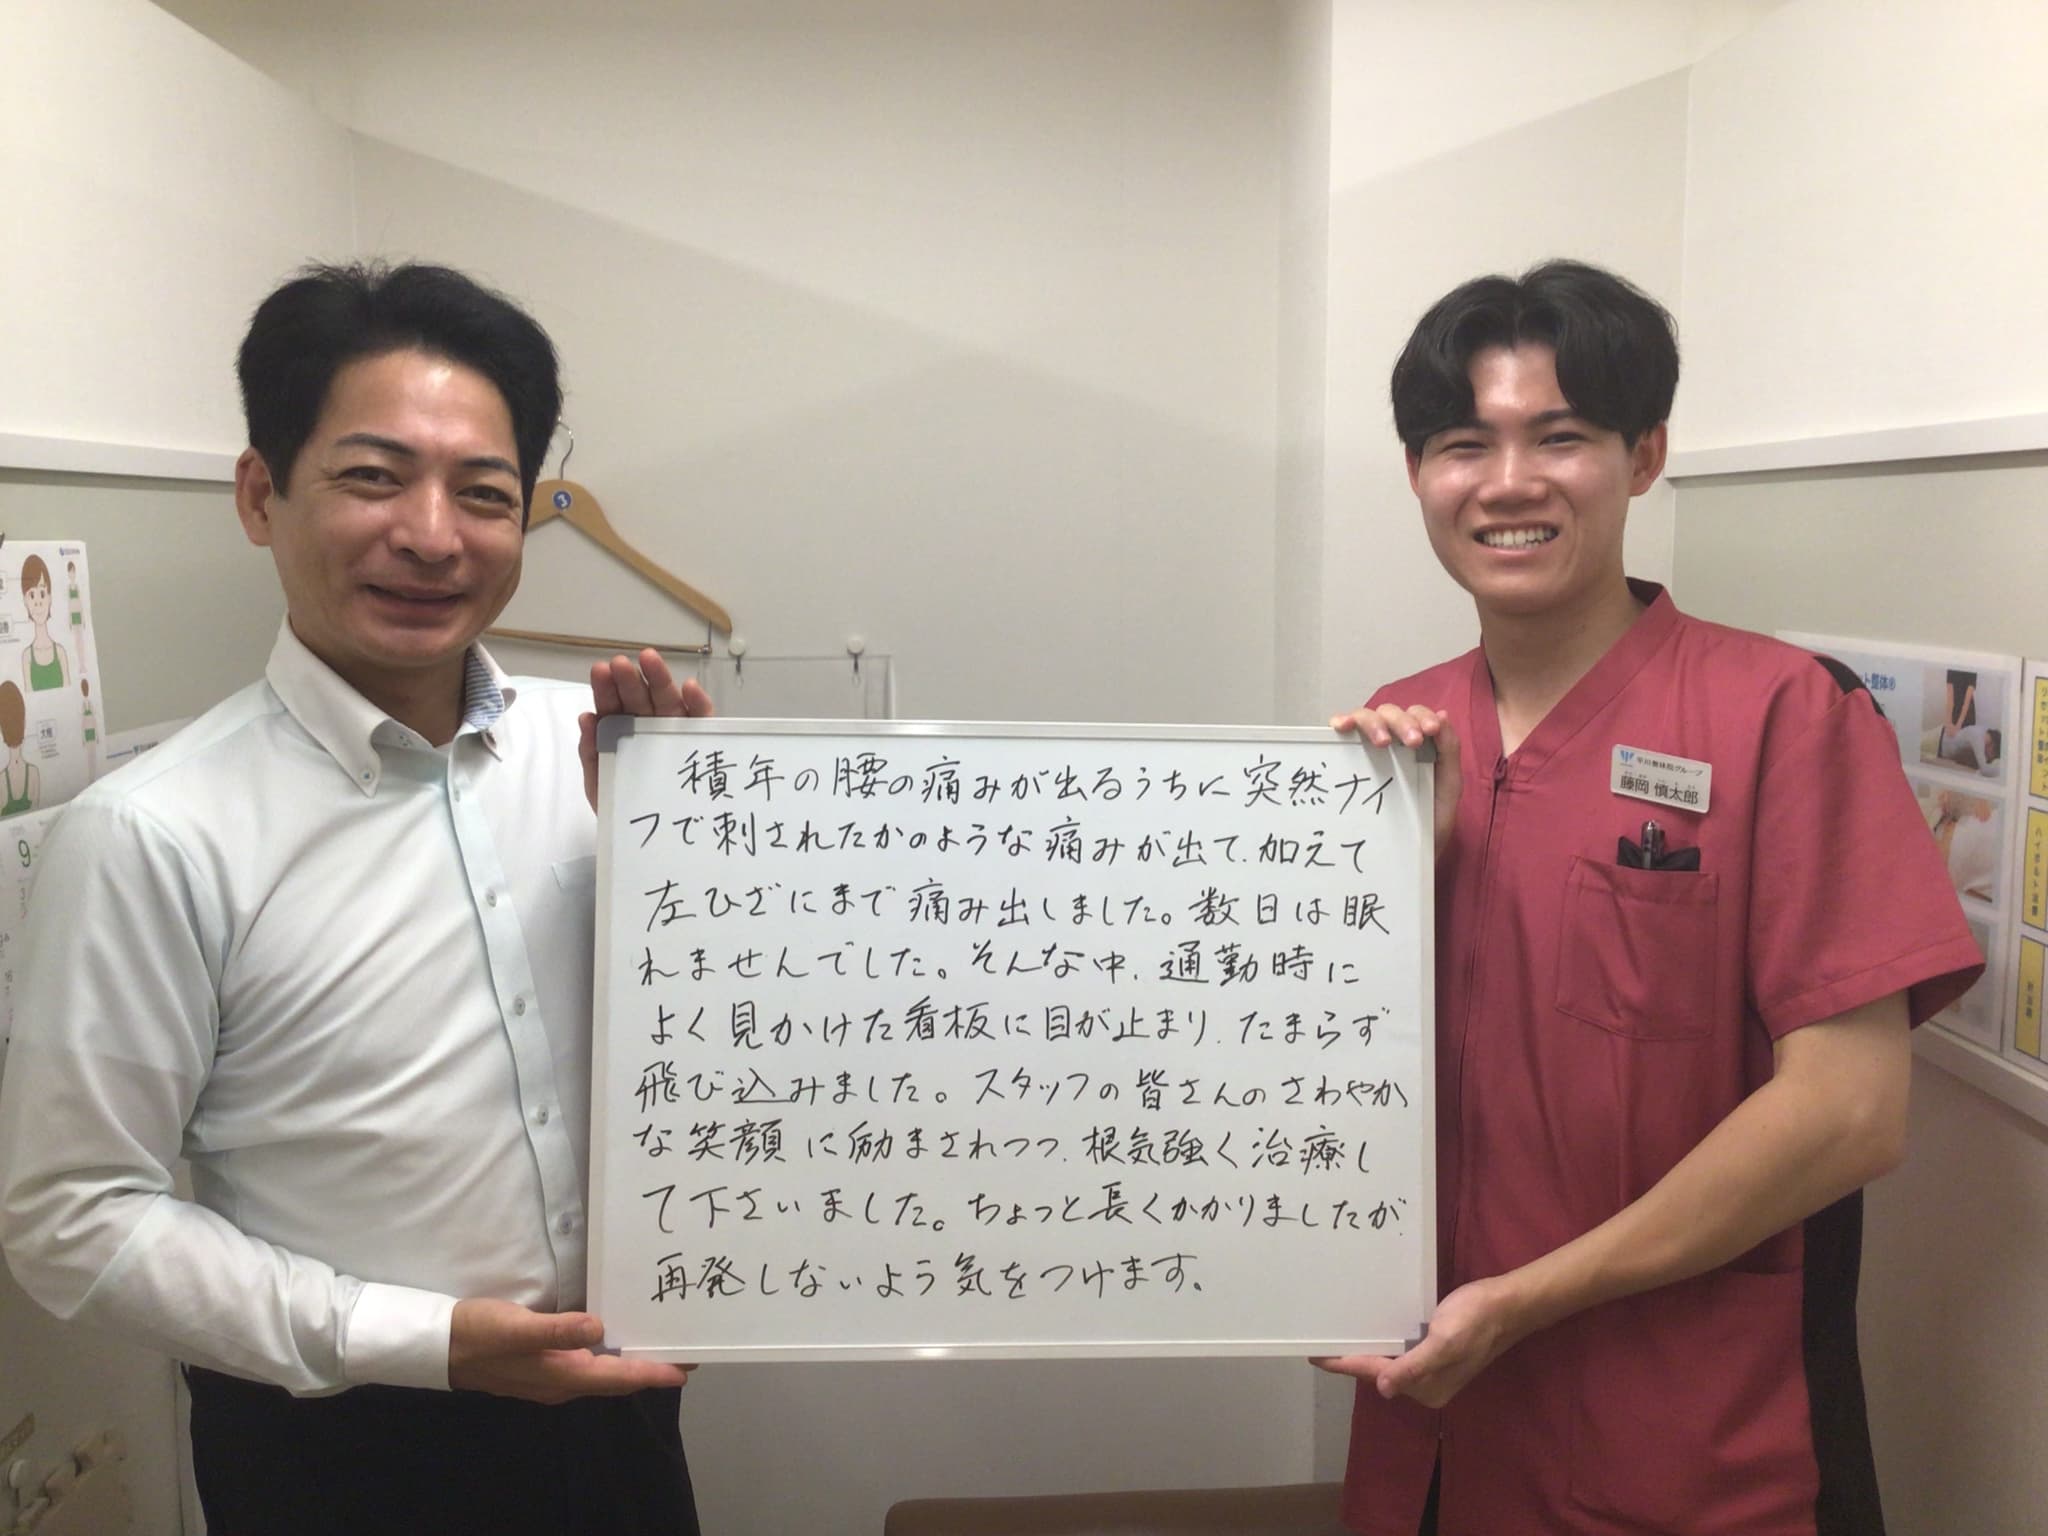 積年の腰の痛みが出るうちに突然ナイ
フで刺されたかのような痛みが出て、加えて
左ひざにまで痛み出しました。数日は眠
れませんでした。そんな中、通勤時に
よく見かけた看板に目が止まり、たまらず
飛び込みました。スタッフの皆さんのさわやか
な笑顔に励まされつつ、根気強く治療し
て下さいました。ちょっと長くかかりましたが、
再発しないよう気をつけます。
平川整体院グループ
藤岡 慎太郎
3
ット整体®
9
ハイボルト治療